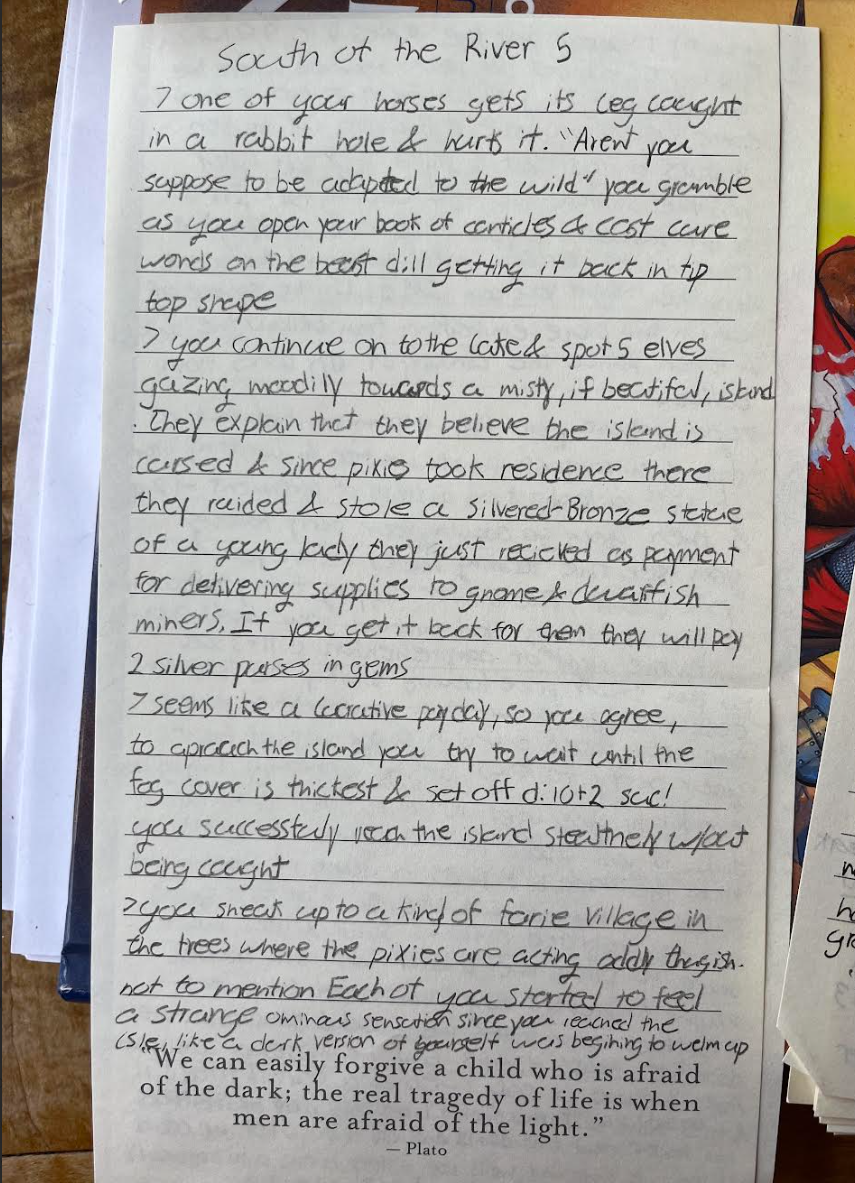 South of the River 5
> one of your horses gets its leg caught
in a rabbit hole & hurts it. "Arent you
suppose to be adapted to the wild" you grumble
as you open your book of canticles & cast cure
wonds on the beast dill getting it back in tip
top shape
> you continue on to the lake & spot 5 elves
gazing moodily towards a misty, if beatiful, island
. They explain that they believe the island is
cursed & since pixie took residence there
they raided & stole a silvered-Bronze statue
of a young lady they just recieved as payment
for delivering supplies to gnome & dwarfish
miners. If you get it back for them they will pay
2 silver purses in gems
> seems like a lucrative payday, so you agree,
to aproach the island you try to wait until the
fog cover is thickest & set off d:10+2 suc!
you successfuly reach the island w/out
being caught
> you sneak up to a kind of farie village in
the trees where the pixies are acting oddly thugish.
not to mention Each of you started to feel
a strange ominous sensation since you reached the
isle, like a dark version of yourself was begining to welm up
"We can easily forgive a child who is afraid
of the dark; the real tragedy of life is when
men are afraid of the light."
— Plato